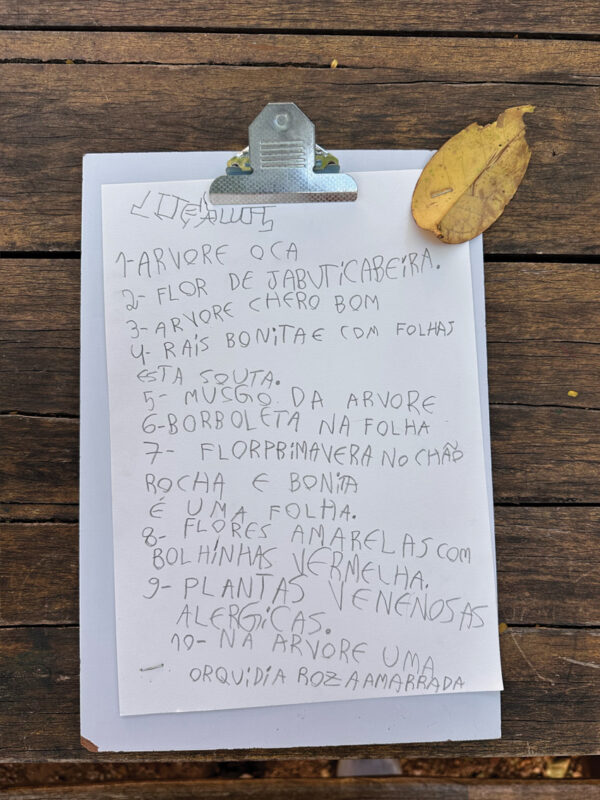 1-ARVORE OCA
2- FLOR DE JABUTICABEIRA.
3- ARVORE CHERO BOM
4- RAIS BONITA E COM FOLHAS
ESTA SOUTA.
5- MUSGO DA ARVORE
6-BORBOLETA NA FOLHA
7- FLORPRIMAVERA NO CHÃO
ROCHA E BONITA
É UMA FOLHA.
8- FLORES AMARELAS COM
BOLHINHAS VERMELHA.
9- PLANTAS VENENOSAS
ALERGICAS.
10- NA ARVORE UMA
ORQUIDIA ROZA AMARRADA